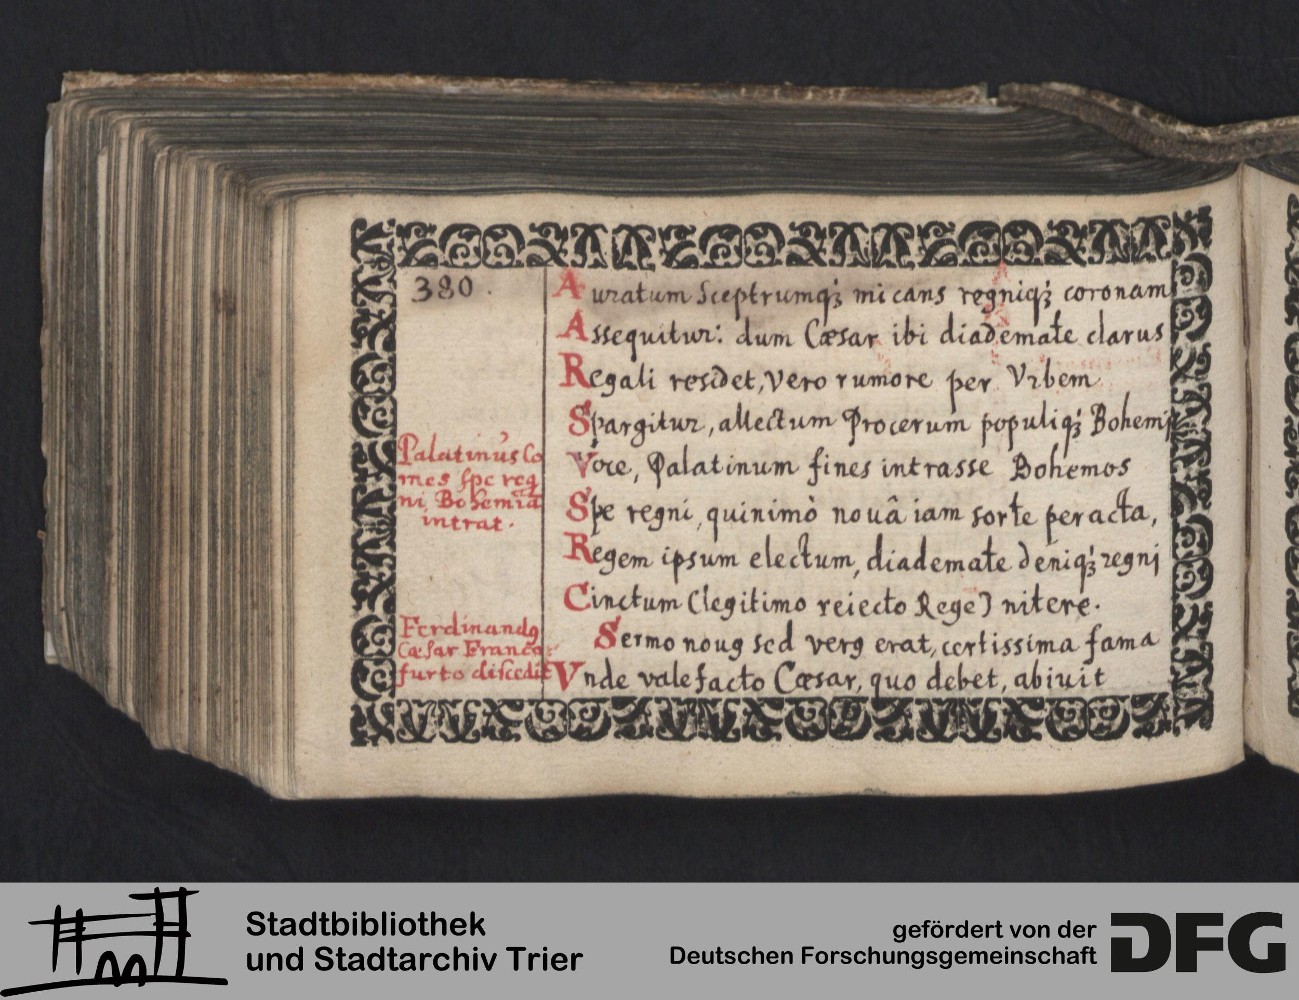 380.
Auratum Sceptrumq₃ micans regniq₃ coronam
Assequitur: dum Cæsar ibi diademate clarus
Regali residet, Vero rumore per Vrbem
Spargitur, allectum Procerum populiq₃ Bohemi
Palatinus Co
mes spe reg
ni Bohemiæ
intrat.
Voce, Palatinum fines intrasse Bohemos
Spe regni, quinimò nouâ iam sorte peracta,
Regem ipsum electum, diademate deniq₃ regni
Cinctum (legitimo reiecto Rege) nitere.
Ferdinandꝯ
Cæsar Franco-
furto discedit
Sermo nouꝯ sed verꝯ erat, certissima fama
Vnde valefacto Cæsar, quo debet, abiuit
Stadtbibliothek
und Stadtarchiv Trier
gefördert von der
Deutschen Forschungsgemeinschaft
DFG